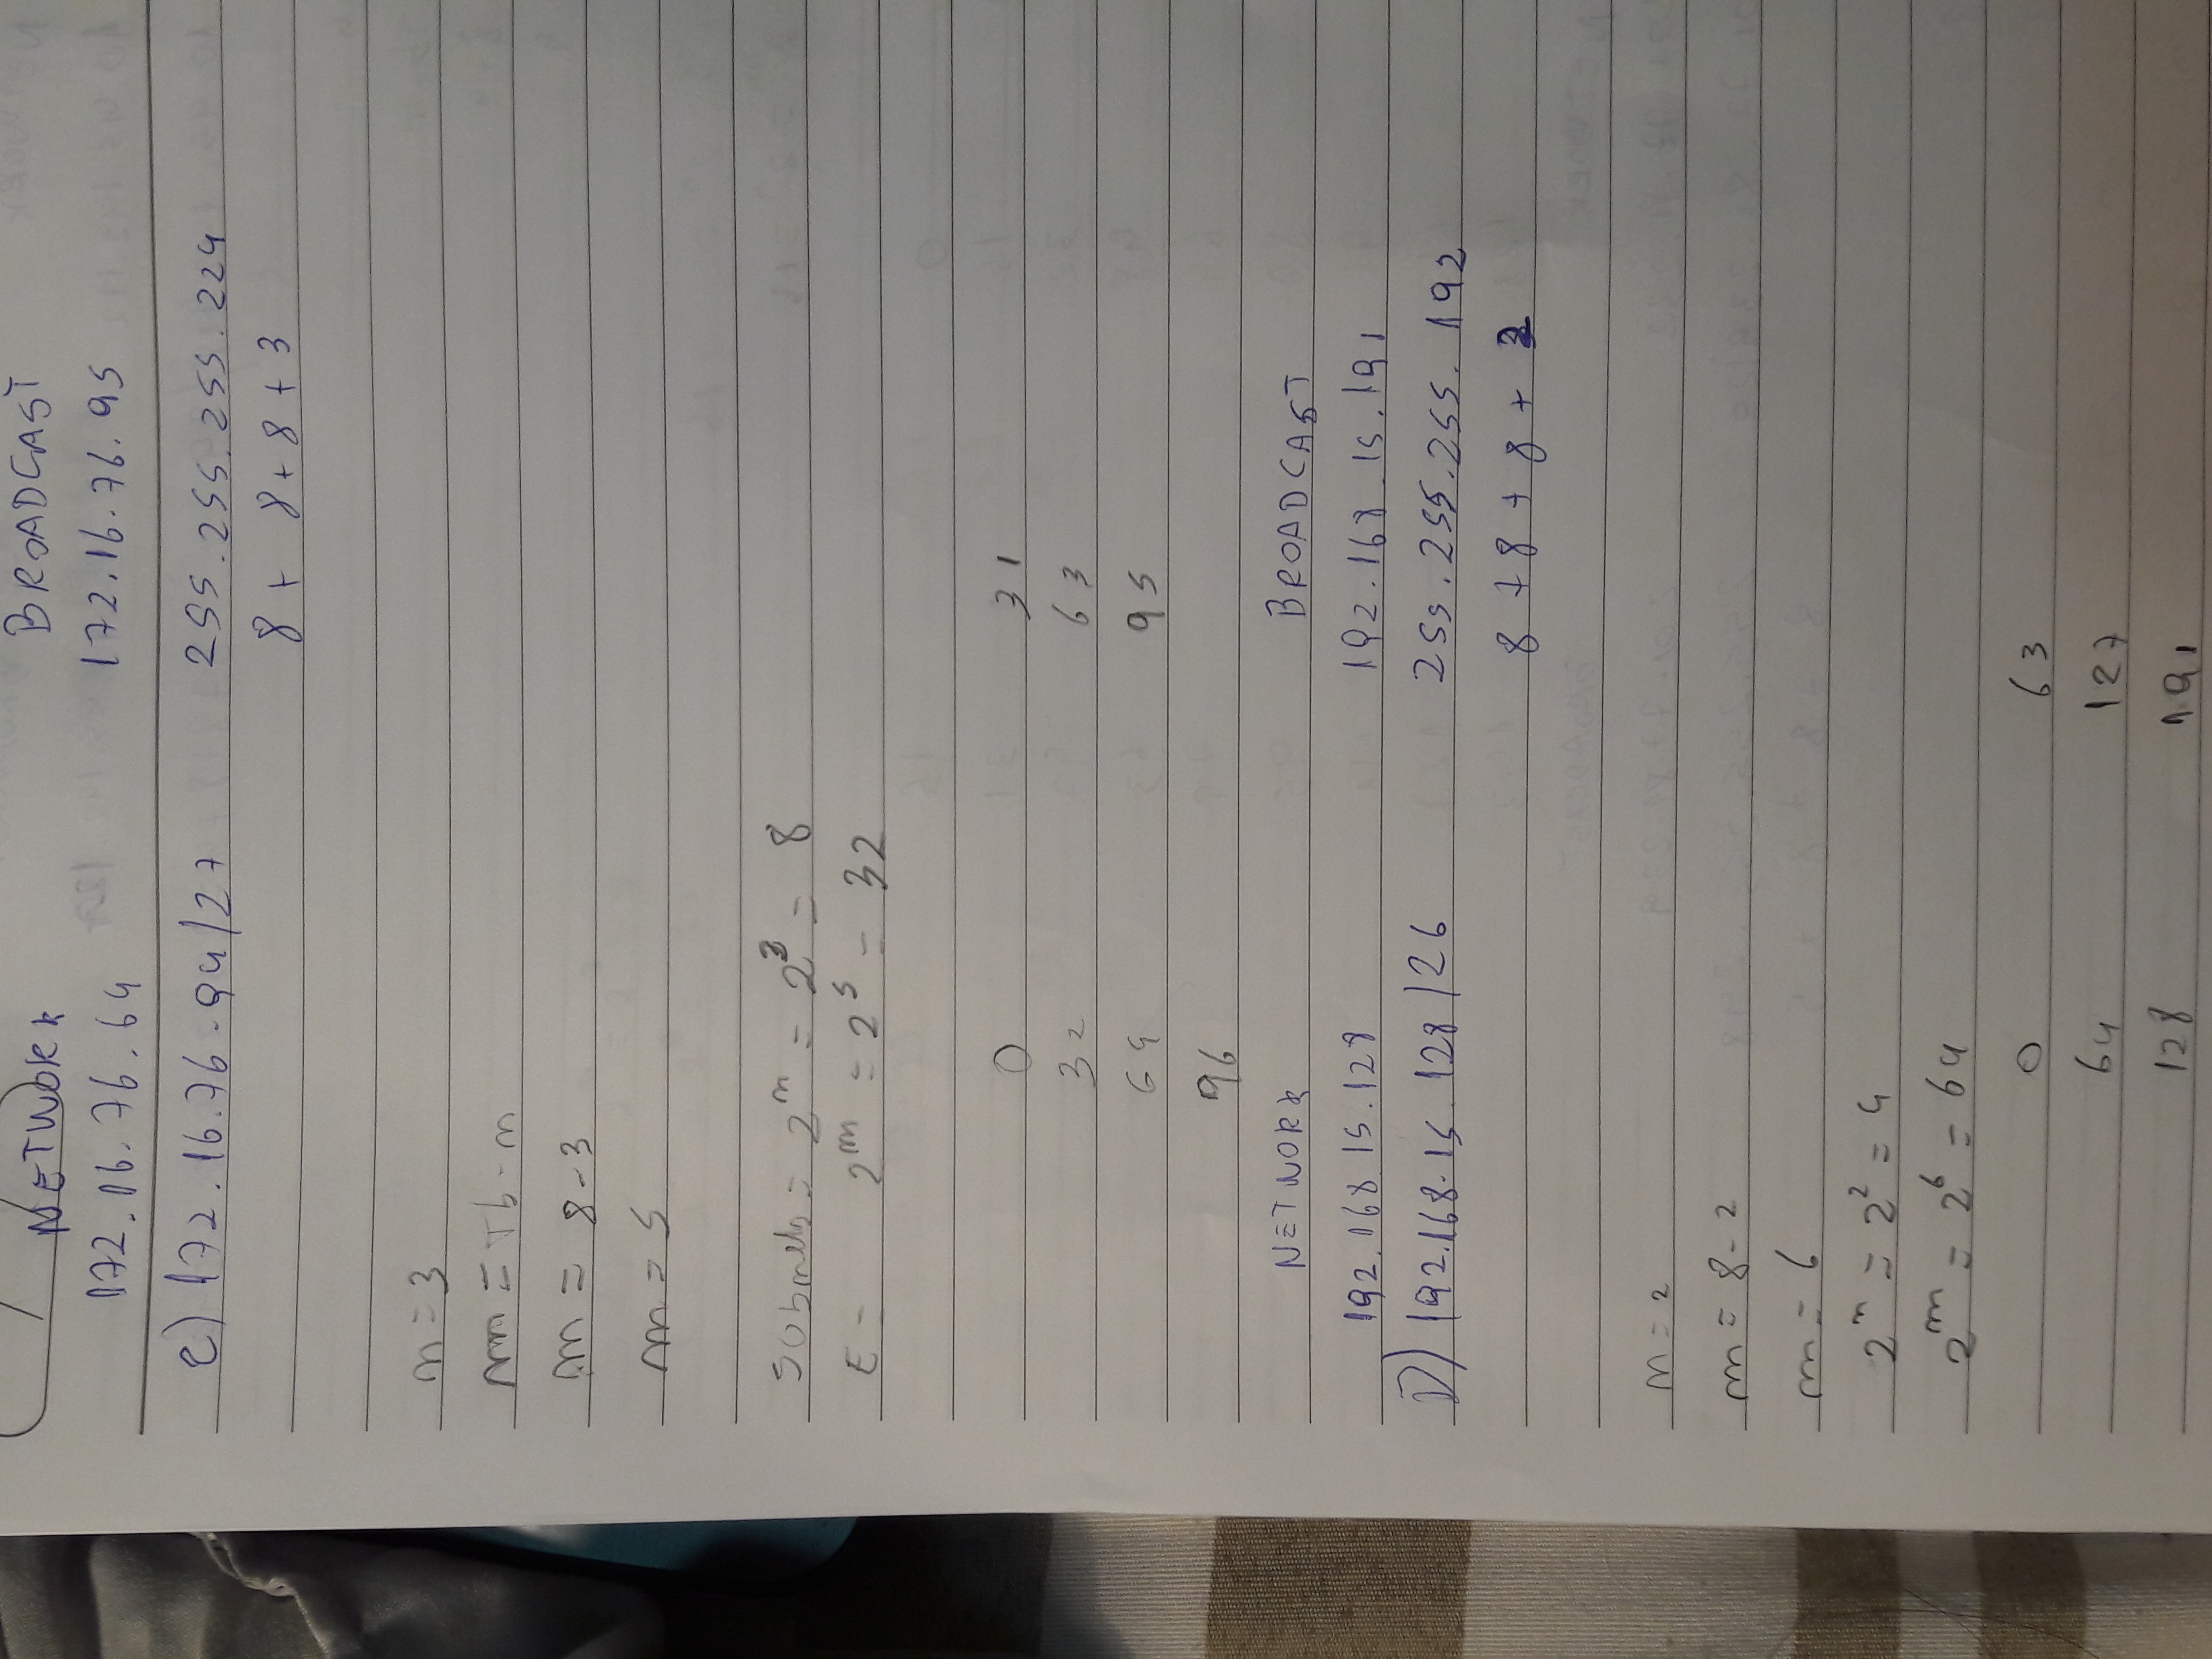 NETWORK BROADCAST
172.16.76.64 172.16.76.95
C) 172.16.76.94/27 255.255.255.224
8 + 8 + 8 + 3
n = 3
m = Tb - n
m = 8 - 3
m = 5
Subnets = 2^n = 2^3 = 8
E = 2^m = 2^5 = 32
0 31
32 63
64 95
96
NETWORK BROADCAST
192.168.15.128 192.168.15.191
D) 192.168.15.128/26 255.255.255.192
8 + 8 + 8 + 2
n = 2
m = 8 - 2
m = 6
2^n = 2^2 = 4
2^m = 2^6 = 64
0 63
64 127
128 191